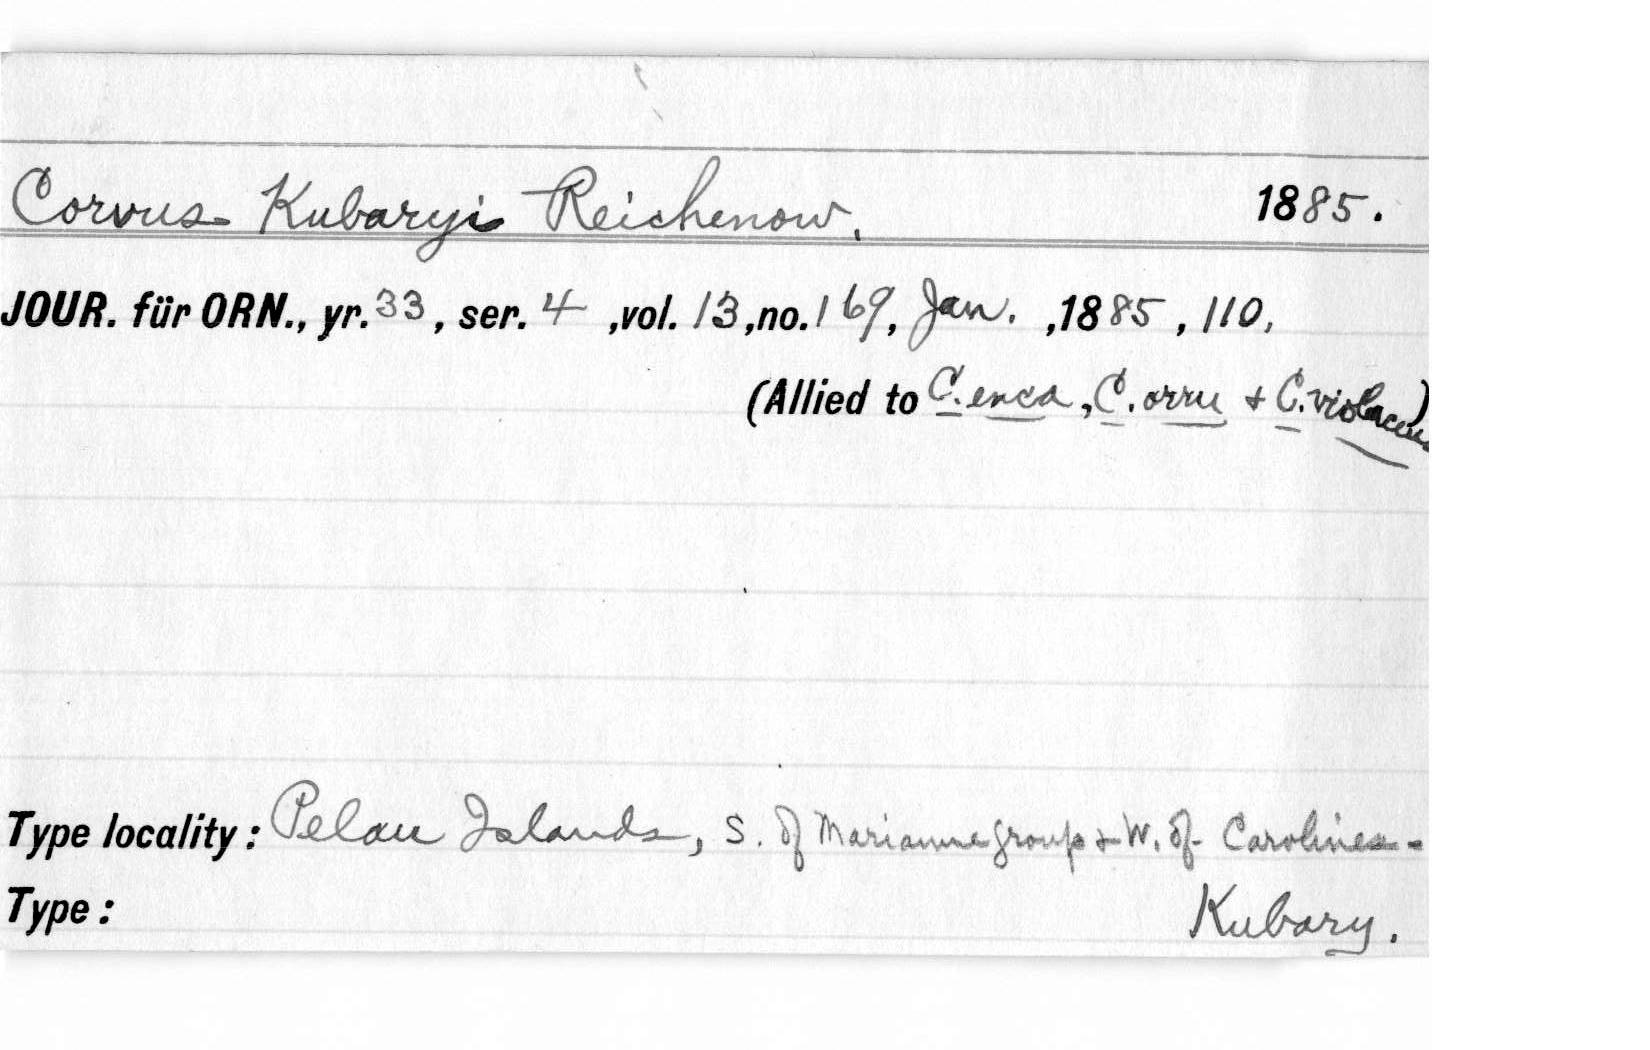 Corvus Kubaryi Reichenow. 1885.
JOUR. für ORN., yr. 33, ser. 4, vol. 13, no. 169, Jan., 1885, 110,
(Allied to C. enca, C. orru + C. violaceus)
Type locality: Pelau Islands, S. of Marianne group & W. of Carolines.
Type: Kubary.